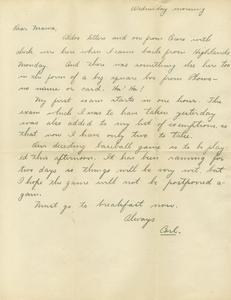 Wednesday morning
Dear Mama,
letters and one from
check in here when I came back from Highlands
Monday. And there was something else here too
in the form of a big square box from
no name or card. Ha! Ha!
My first exam starts in one hour. The
exam which I was to have taken yesterday
was also added to my list of exemptions, so
that now I have only two to take.
Our deciding baseball game is to be play-
ed this afternoon. It has been raining for
two days so things will be very wet but
I hope the game will not be postponed a-
gain.
Must go to breakfast now.
Always